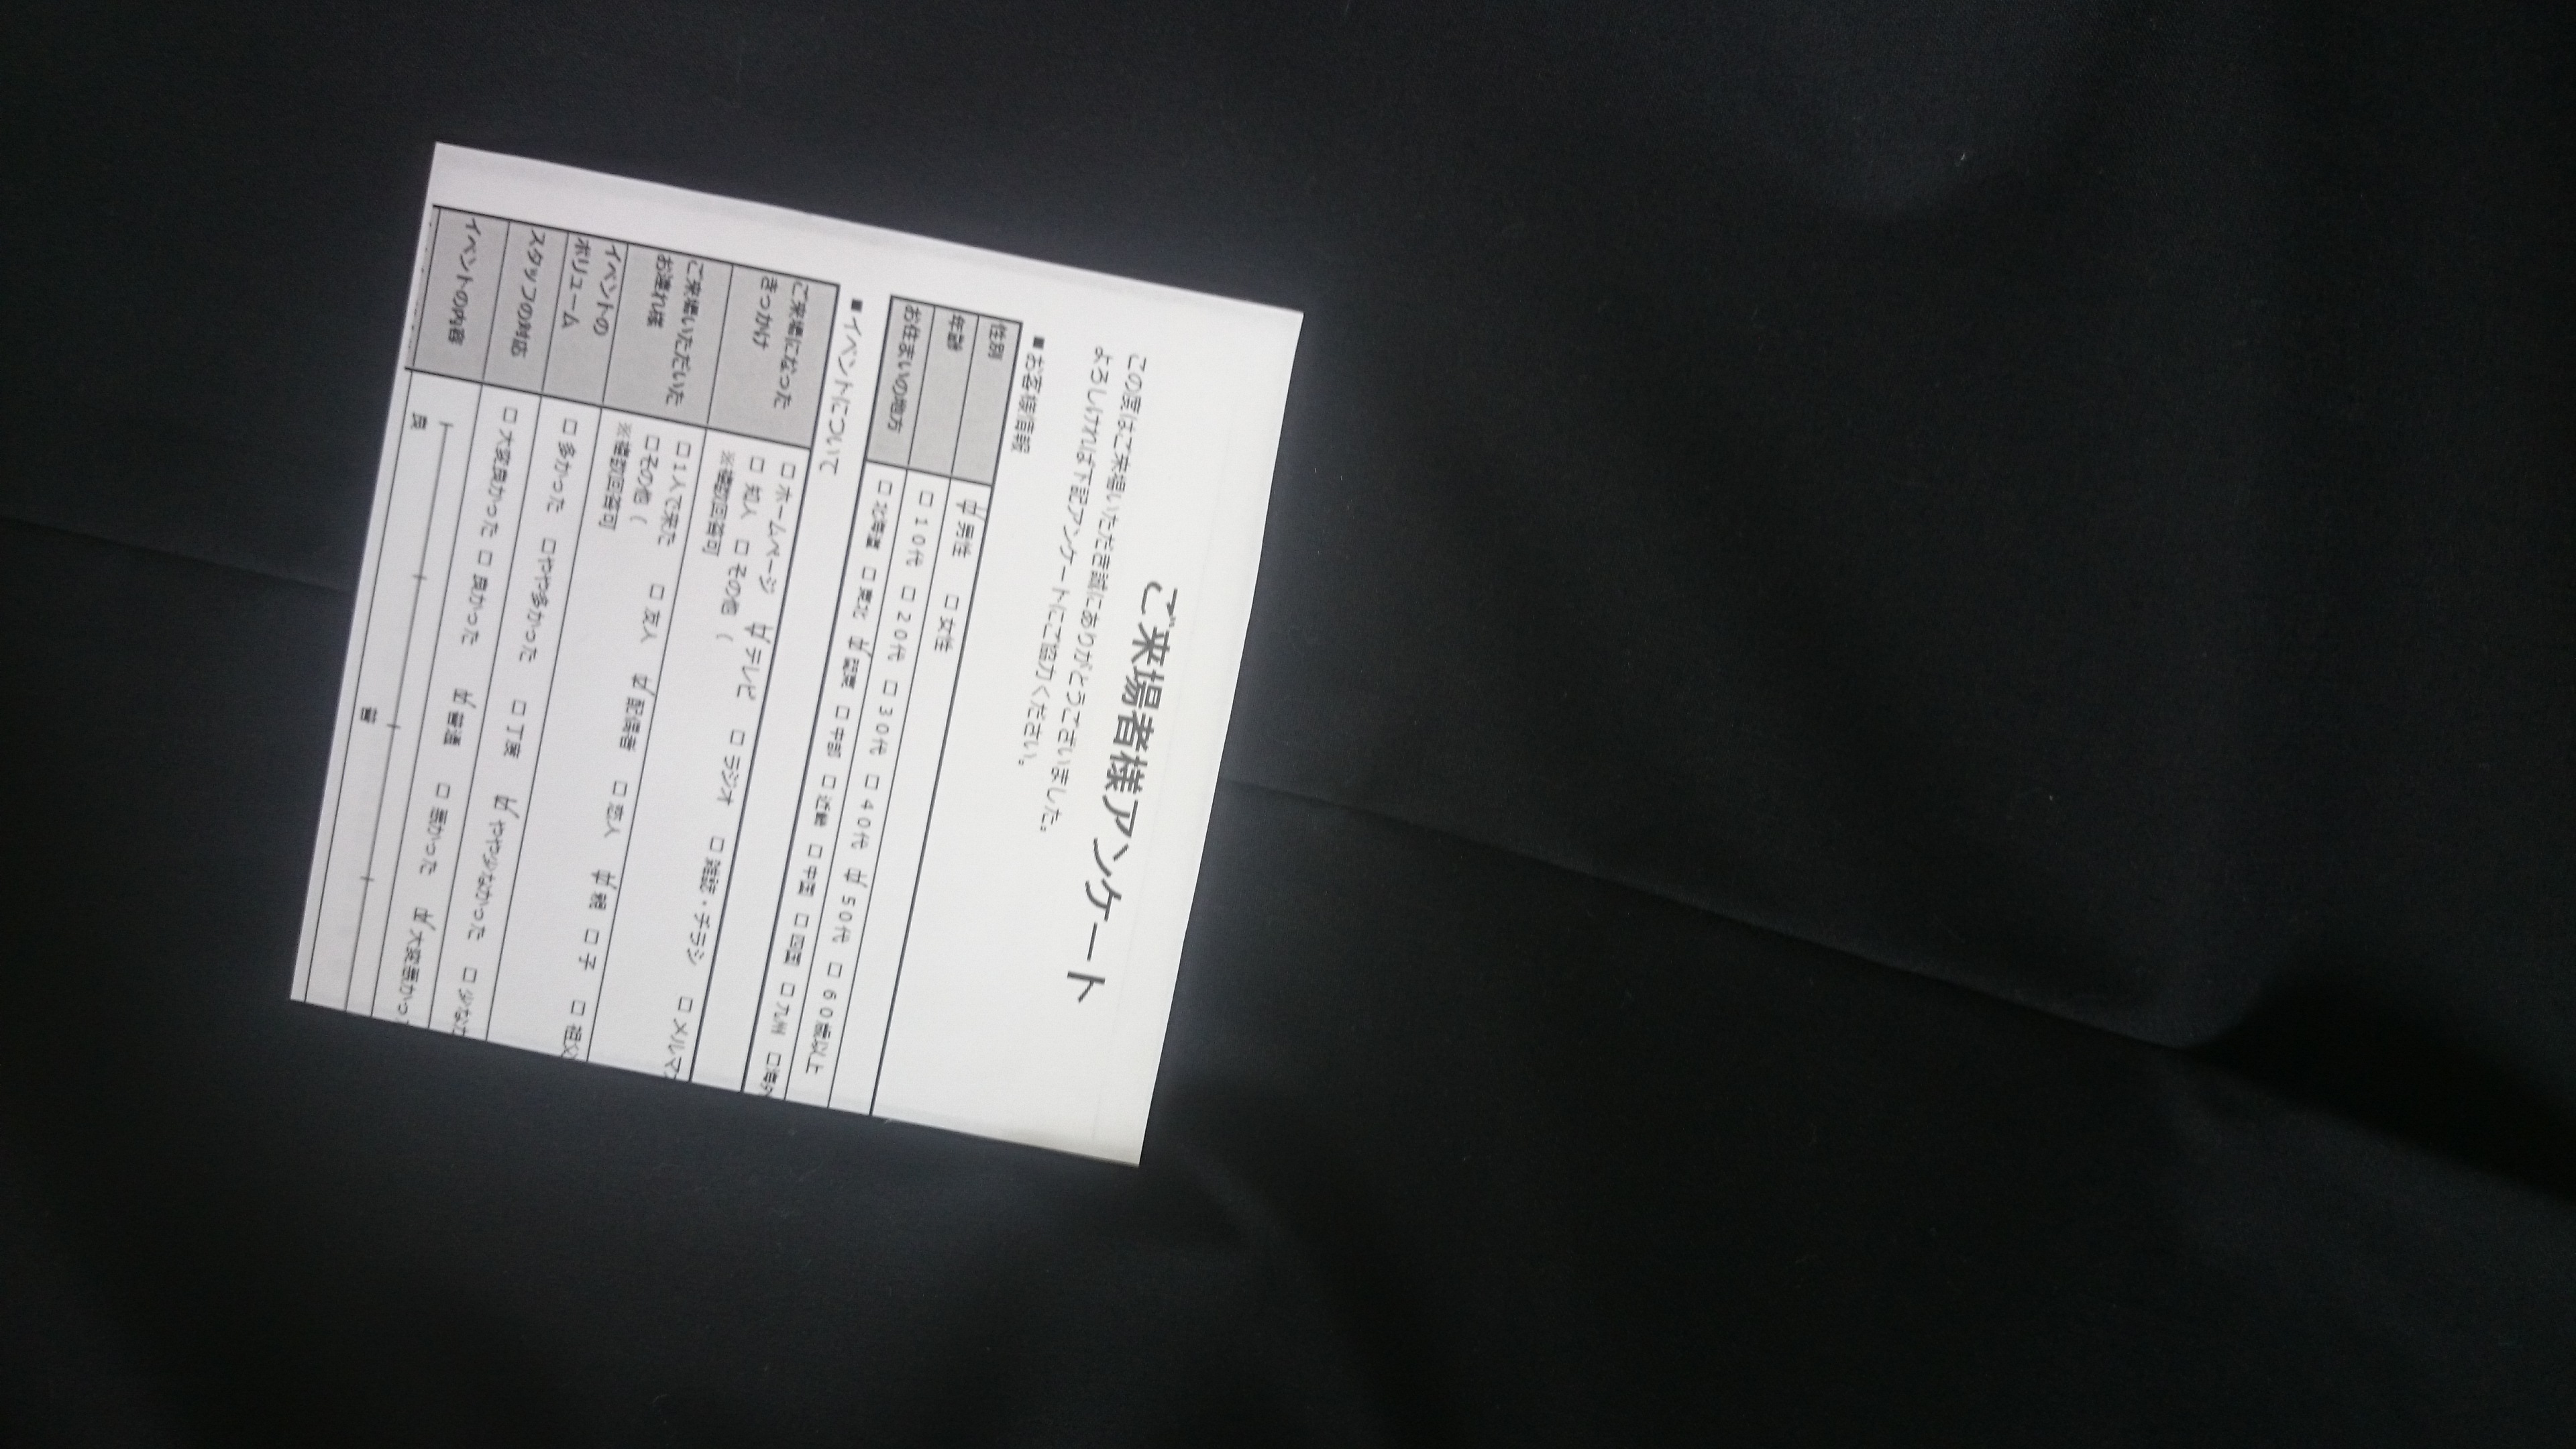 ご来場者様アンケート
この度はご来場いただき誠にありがとうございました。
よろしければ下記アンケートにご協力ください。
■お客様情報
性別 ☑男性 □女性
年齢 □10代 □20代 □30代 □40代 ☑50代 □60歳以上
お住まいの地方 □北海道 □東北 ☑関東 □中部 □近畿 □中国 □四国 □九州 □海外
■イベントについて
ご来場になった
きっかけ
□ホームページ ☑テレビ □ラジオ □雑誌・チラシ □メルマ
□知人 □その他（
※複数回答可
ご来場いただいた
お連れ様
□1人で来た □友人 ☑配偶者 □恋人 ☑親 □子 □祖父
□その他（
※複数回答可
イベントの
ボリューム
□多かった □やや多かった □丁度 ☑やや少なかった □少なか
スタッフの対応 □大変良かった □良かった ☑普通 □悪かった ☑大変悪かっ
イベントの内容
良 普